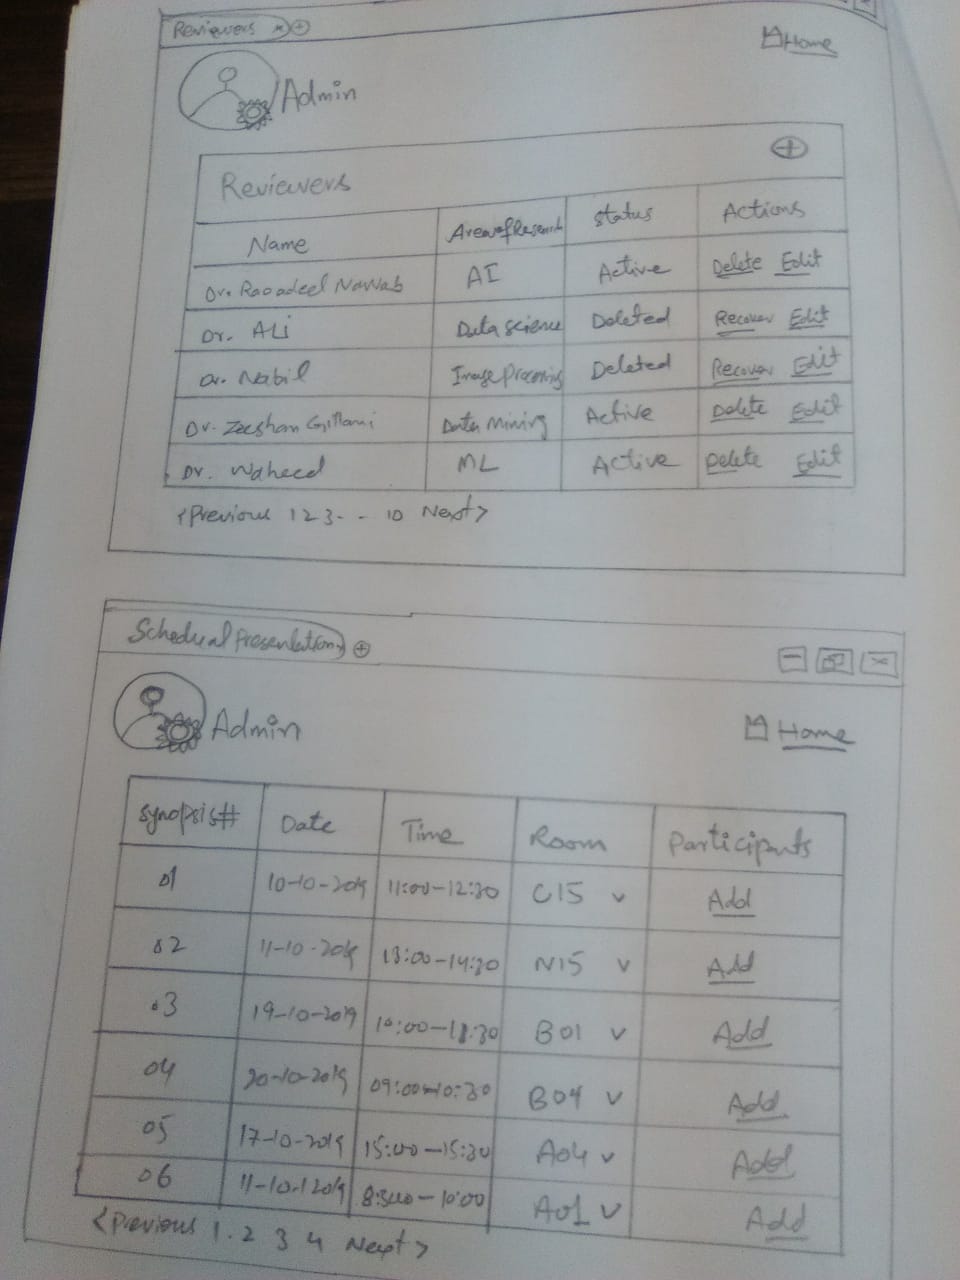 Reviewers
Home
Admin
Reviewers
Name Area of Research Status Actions
Dr. Rao adeel Nawab AI Active Delete Edit
Dr. ALi Data science Deleted Recover Edit
Dr. Nabil Image Processing Deleted Recover Edit
Dr. Zeeshan Gillani Data Mining Active Delete Edit
Dr. Waheed ML Active Delete Edit
<Previous 1 2 3 - - 10 Next>
Schedual Presentation
Admin
Home
Synopsis# Date Time Room Participants
01 10-10-2019 11:00-12:30 C15 v Add
02 11-10-2019 13:00-14:30 N15 v Add
03 19-10-2019 10:00-11:30 B01 v Add
04 20-10-2019 09:00-10:30 B04 v Add
05 17-10-2019 15:00-15:30 A04 v Add
06 11-10-2019 10:00 A01 v Add
<Previous 1.2 3 4 Next>